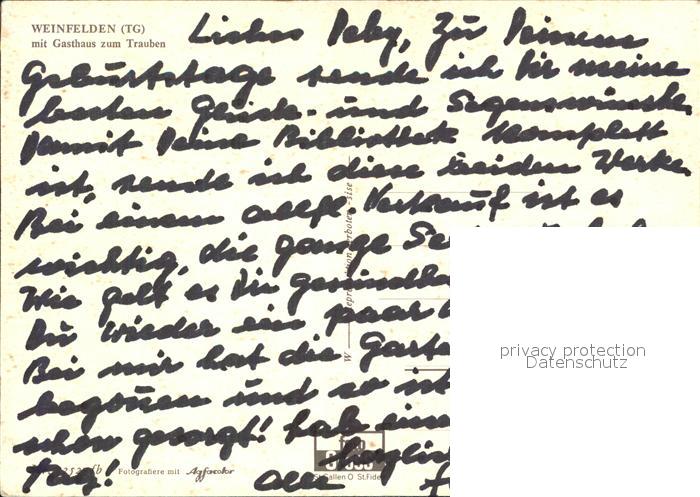 WEINFELDEN (TG)
mit Gasthaus zum Trauben
Liebes Deby, Zu Deinem
Geburtstage sende ich Dir meine
besten Glück- und Segenswünsche.
Damit Deine Bibliothek komplett
ist, sende ich diese beiden Werke.
Bei einem allfl. Verkauf ist es
wichtig, die ganze
Wie geht es Dir
Du wieder ein paar
Bei mir hat die
begonnen und so ist
schon gesorgt! Hab
Tag!
Reproduktion verboten
W
foto
GROSS
St. Gallen O St. Fiden
Fotografiere mit Agfacolor
privacy protection
Datenschutz